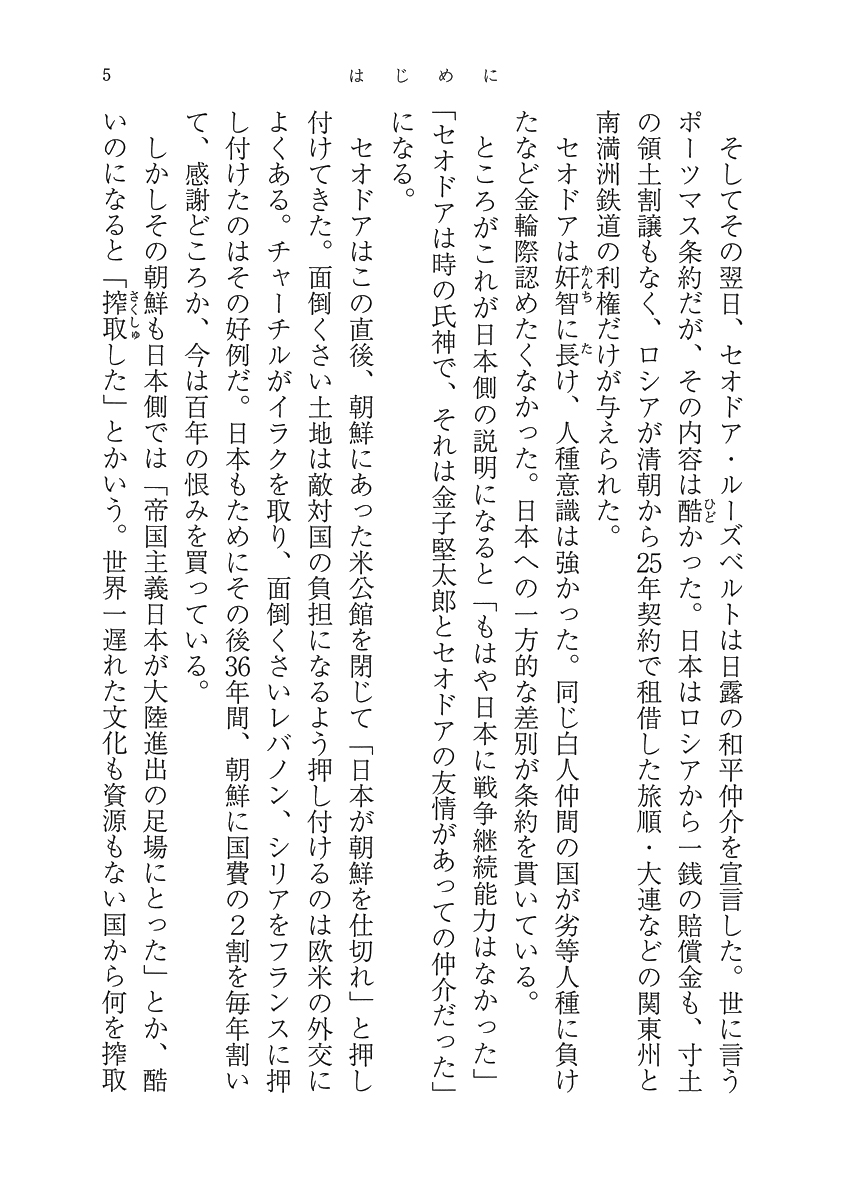 5
はじめに
そしてその翌日、セオドア・ルーズベルトは日露の和平仲介を宣言した。世に言う
ポーツマス条約だが、その内容は酷かった。日本はロシアから一銭の賠償金も、寸土
の領土割譲もなく、ロシアが清朝から25年契約で租借した旅順・大連などの関東州と
南満洲鉄道の利権だけが与えられた。
セオドアは奸智に長け、人種意識は強かった。同じ白人仲間の国が劣等人種に負け
たなど金輪際認めたくなかった。日本への一方的な差別が条約を貫いている。
ところがこれが日本側の説明になると「もはや日本に戦争継続能力はなかった」
「セオドアは時の氏神で、それは金子堅太郎とセオドアの友情があっての仲介だった」
になる。
セオドアはこの直後、朝鮮にあった米公館を閉じて「日本が朝鮮を仕切れ」と押し
付けてきた。面倒くさい土地は敵対国の負担になるよう押し付けるのは欧米の外交に
よくある。チャーチルがイラクを取り、面倒くさいレバノン、シリアをフランスに押
し付けたのはその好例だ。日本もためにその後36年間、朝鮮に国費の2割を毎年割い
て、感謝どころか、今は百年の恨みを買っている。
しかしその朝鮮も日本側では「帝国主義日本が大陸進出の足場にとった」とか、酷
いのになると「搾取した」とかいう。世界一遅れた文化も資源もない国から何を搾取
ひど
かんち
た
さくしゅ